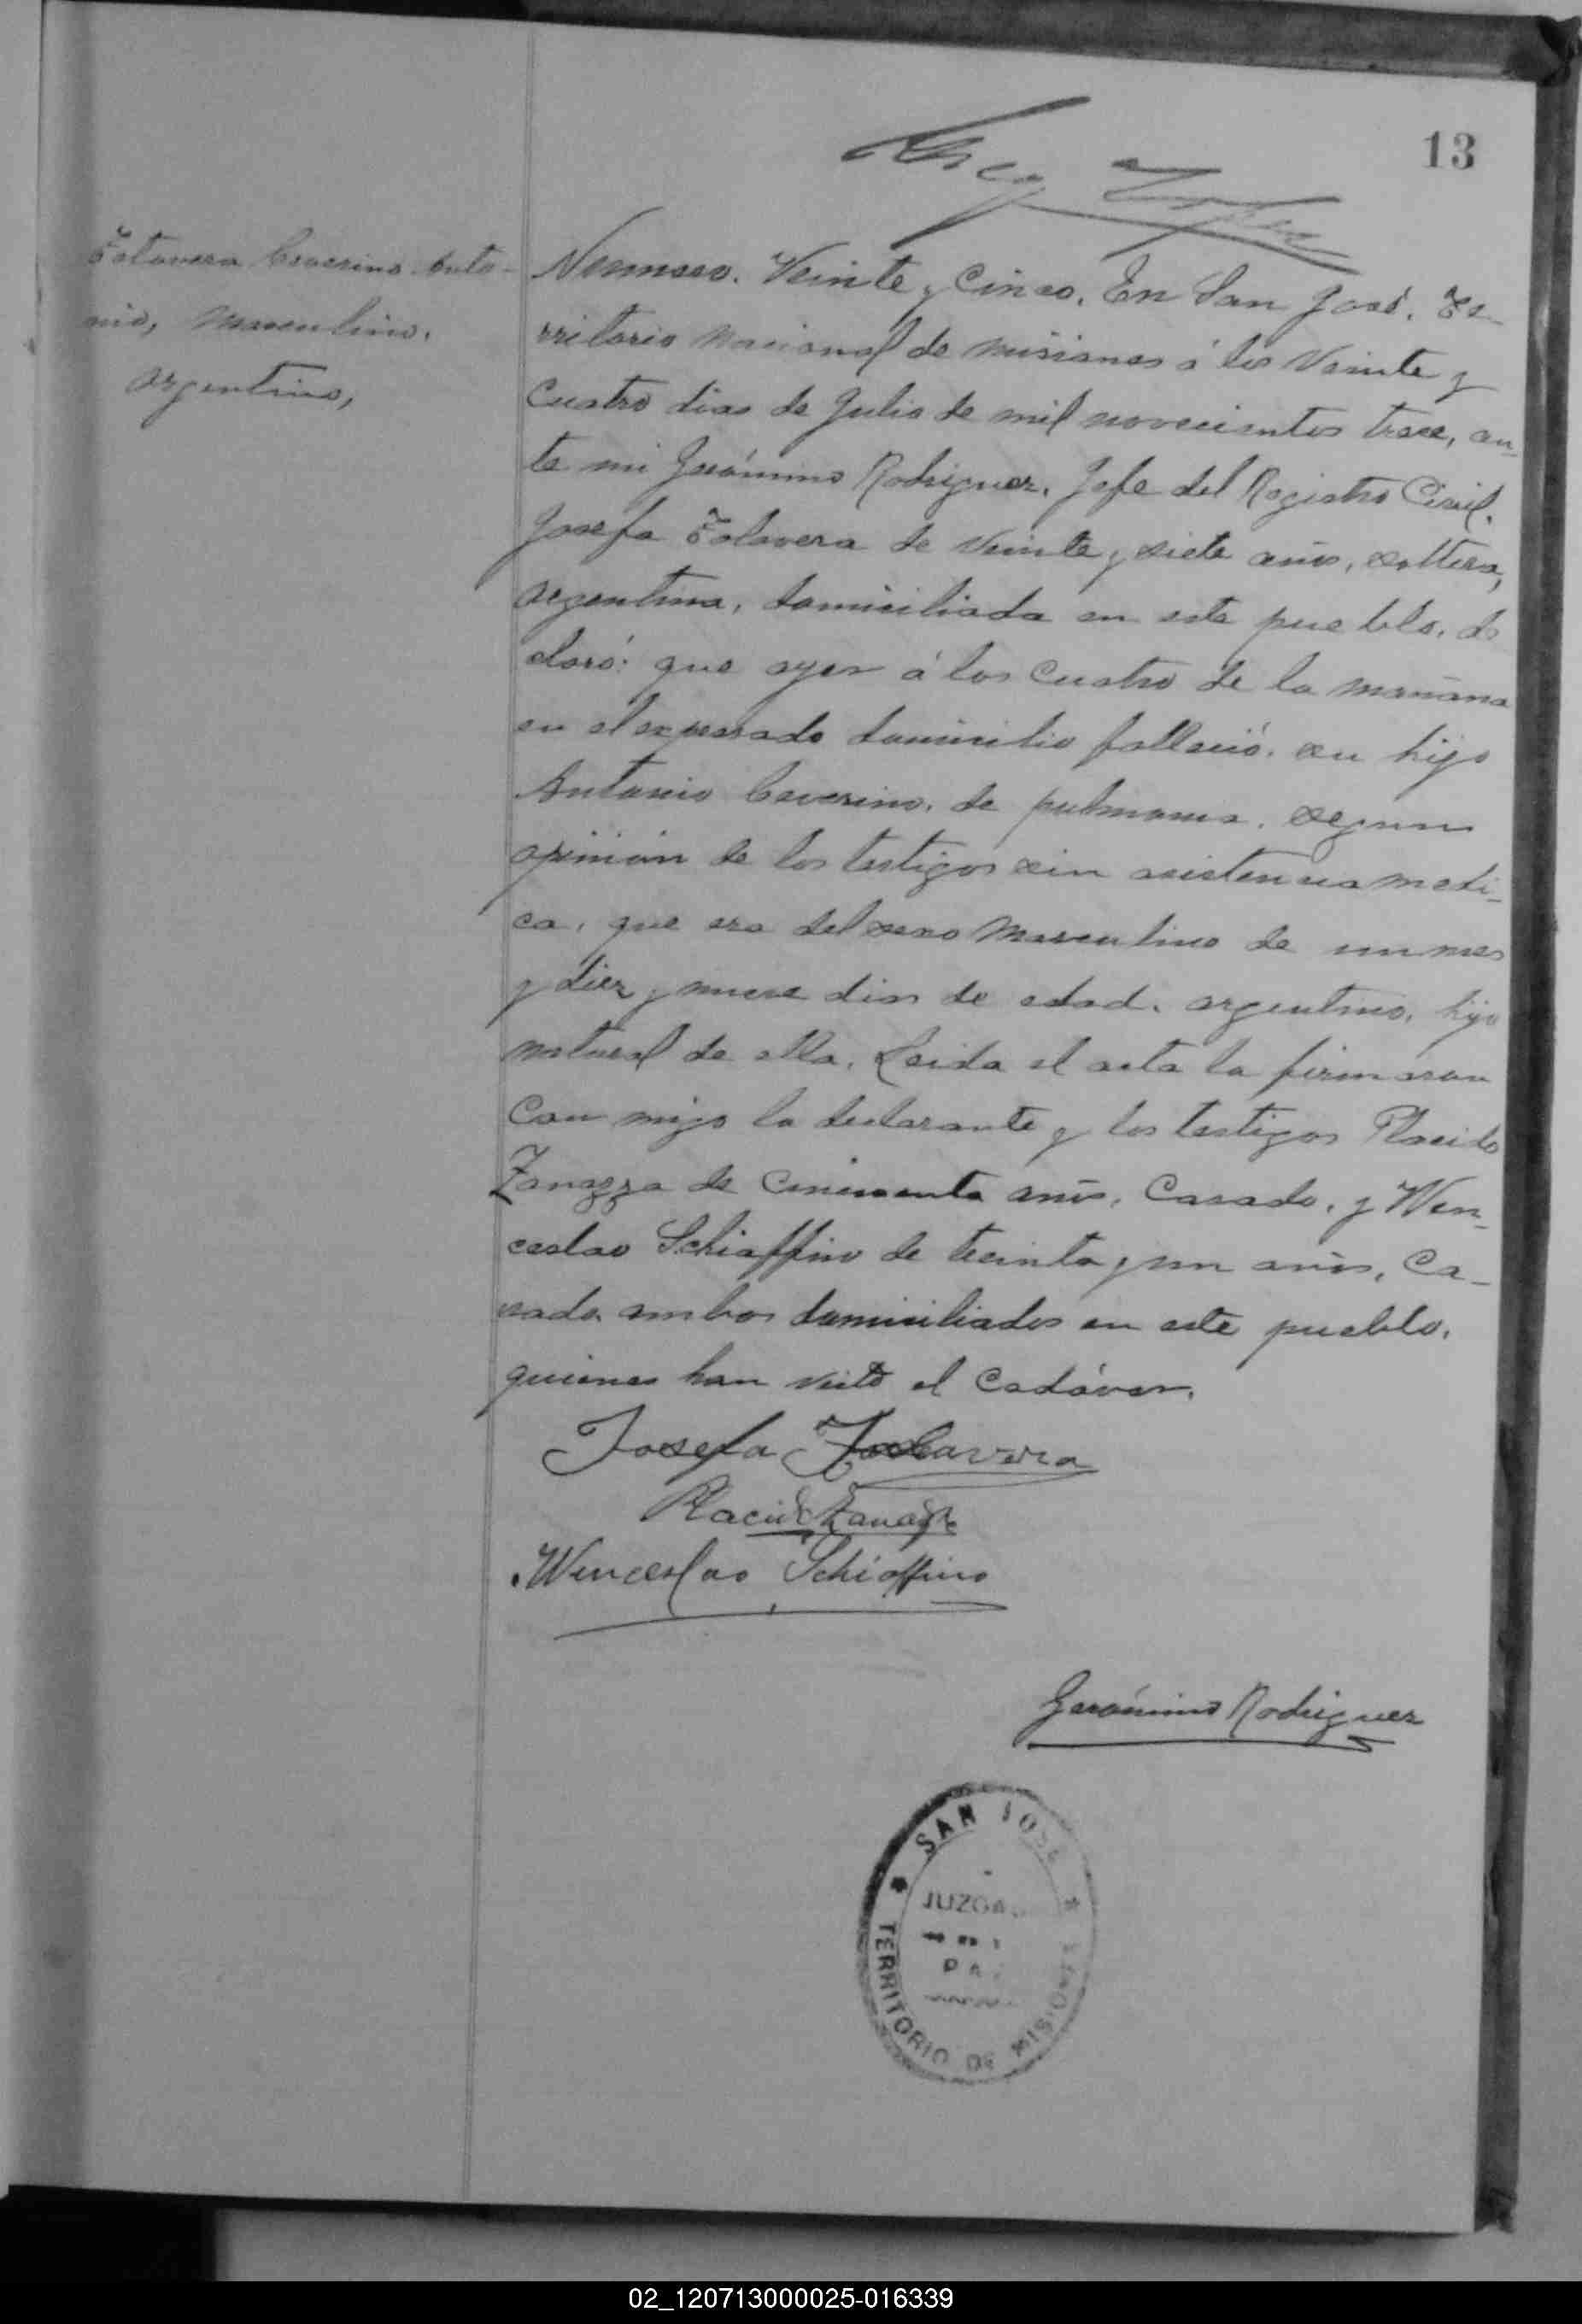 13
Talavera Ceverino Anto-
nio, masculino,
argentino,
Numero. Veinte y Cinco. En San José. Te-
rritorio Nacional de Misiones á los Veinte y
Cuatro dias de Julio de mil novecientos trece, an-
te mi Gerónimo Rodriguez, Jefe del Registro Civil.
Josefa Talavera de Veinte y siete años, soltera,
argentina, domiciliada en este pueblo, de
claró: que ayer á las Cuatro de la mañana
en el expresado domicilio falleció. su hijo
Antonio Ceverino, de pulmonia. segun
opinión de los testigos sin asistencia medi-
ca, que era del sexo Masculino de un mes
y diez y nueve dias de edad. argentino, hijo
natural de ella. Leida el acta la firmaron
Con migo la declarante y los testigos Placido
Zanazza de Cincuenta años, Casado, y Wen-
ceslao Schiaffino de treinta y un años, Ca-
sado. ambos domiciliados en este pueblo,
quienes han visto el Cadáver.
Josefa Talavera
Placido
Wenceslao Schiaffino
Gerónimo Rodriguez
* SAN JOSE *
JUZGA
PA
TERRITORIO DE MISIONES
02_120713000025-016339